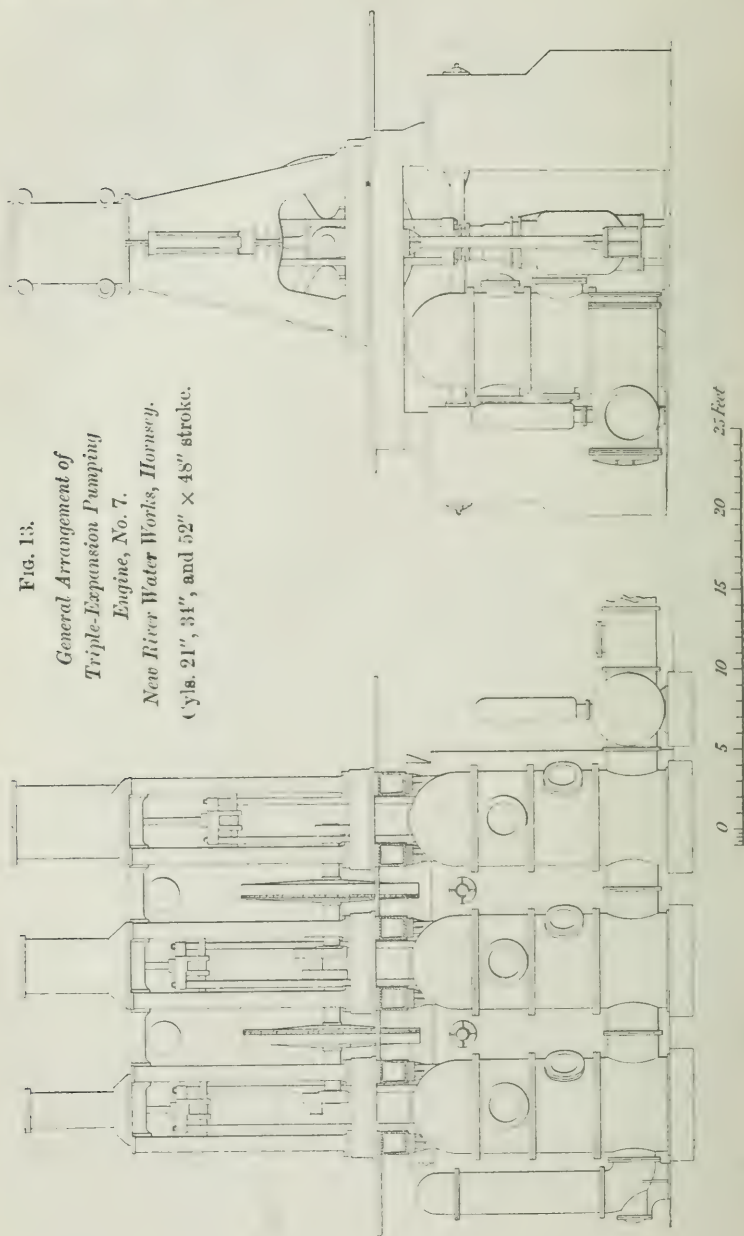 FIG. 13.
General Arrangement of
Triple-Expansion Pumping
Engine, No. 7.
New River Water Works, Hornsey.
Cyls. 21", 34", and 52" × 48" stroke.
0 5 10 15 20 25 Feet